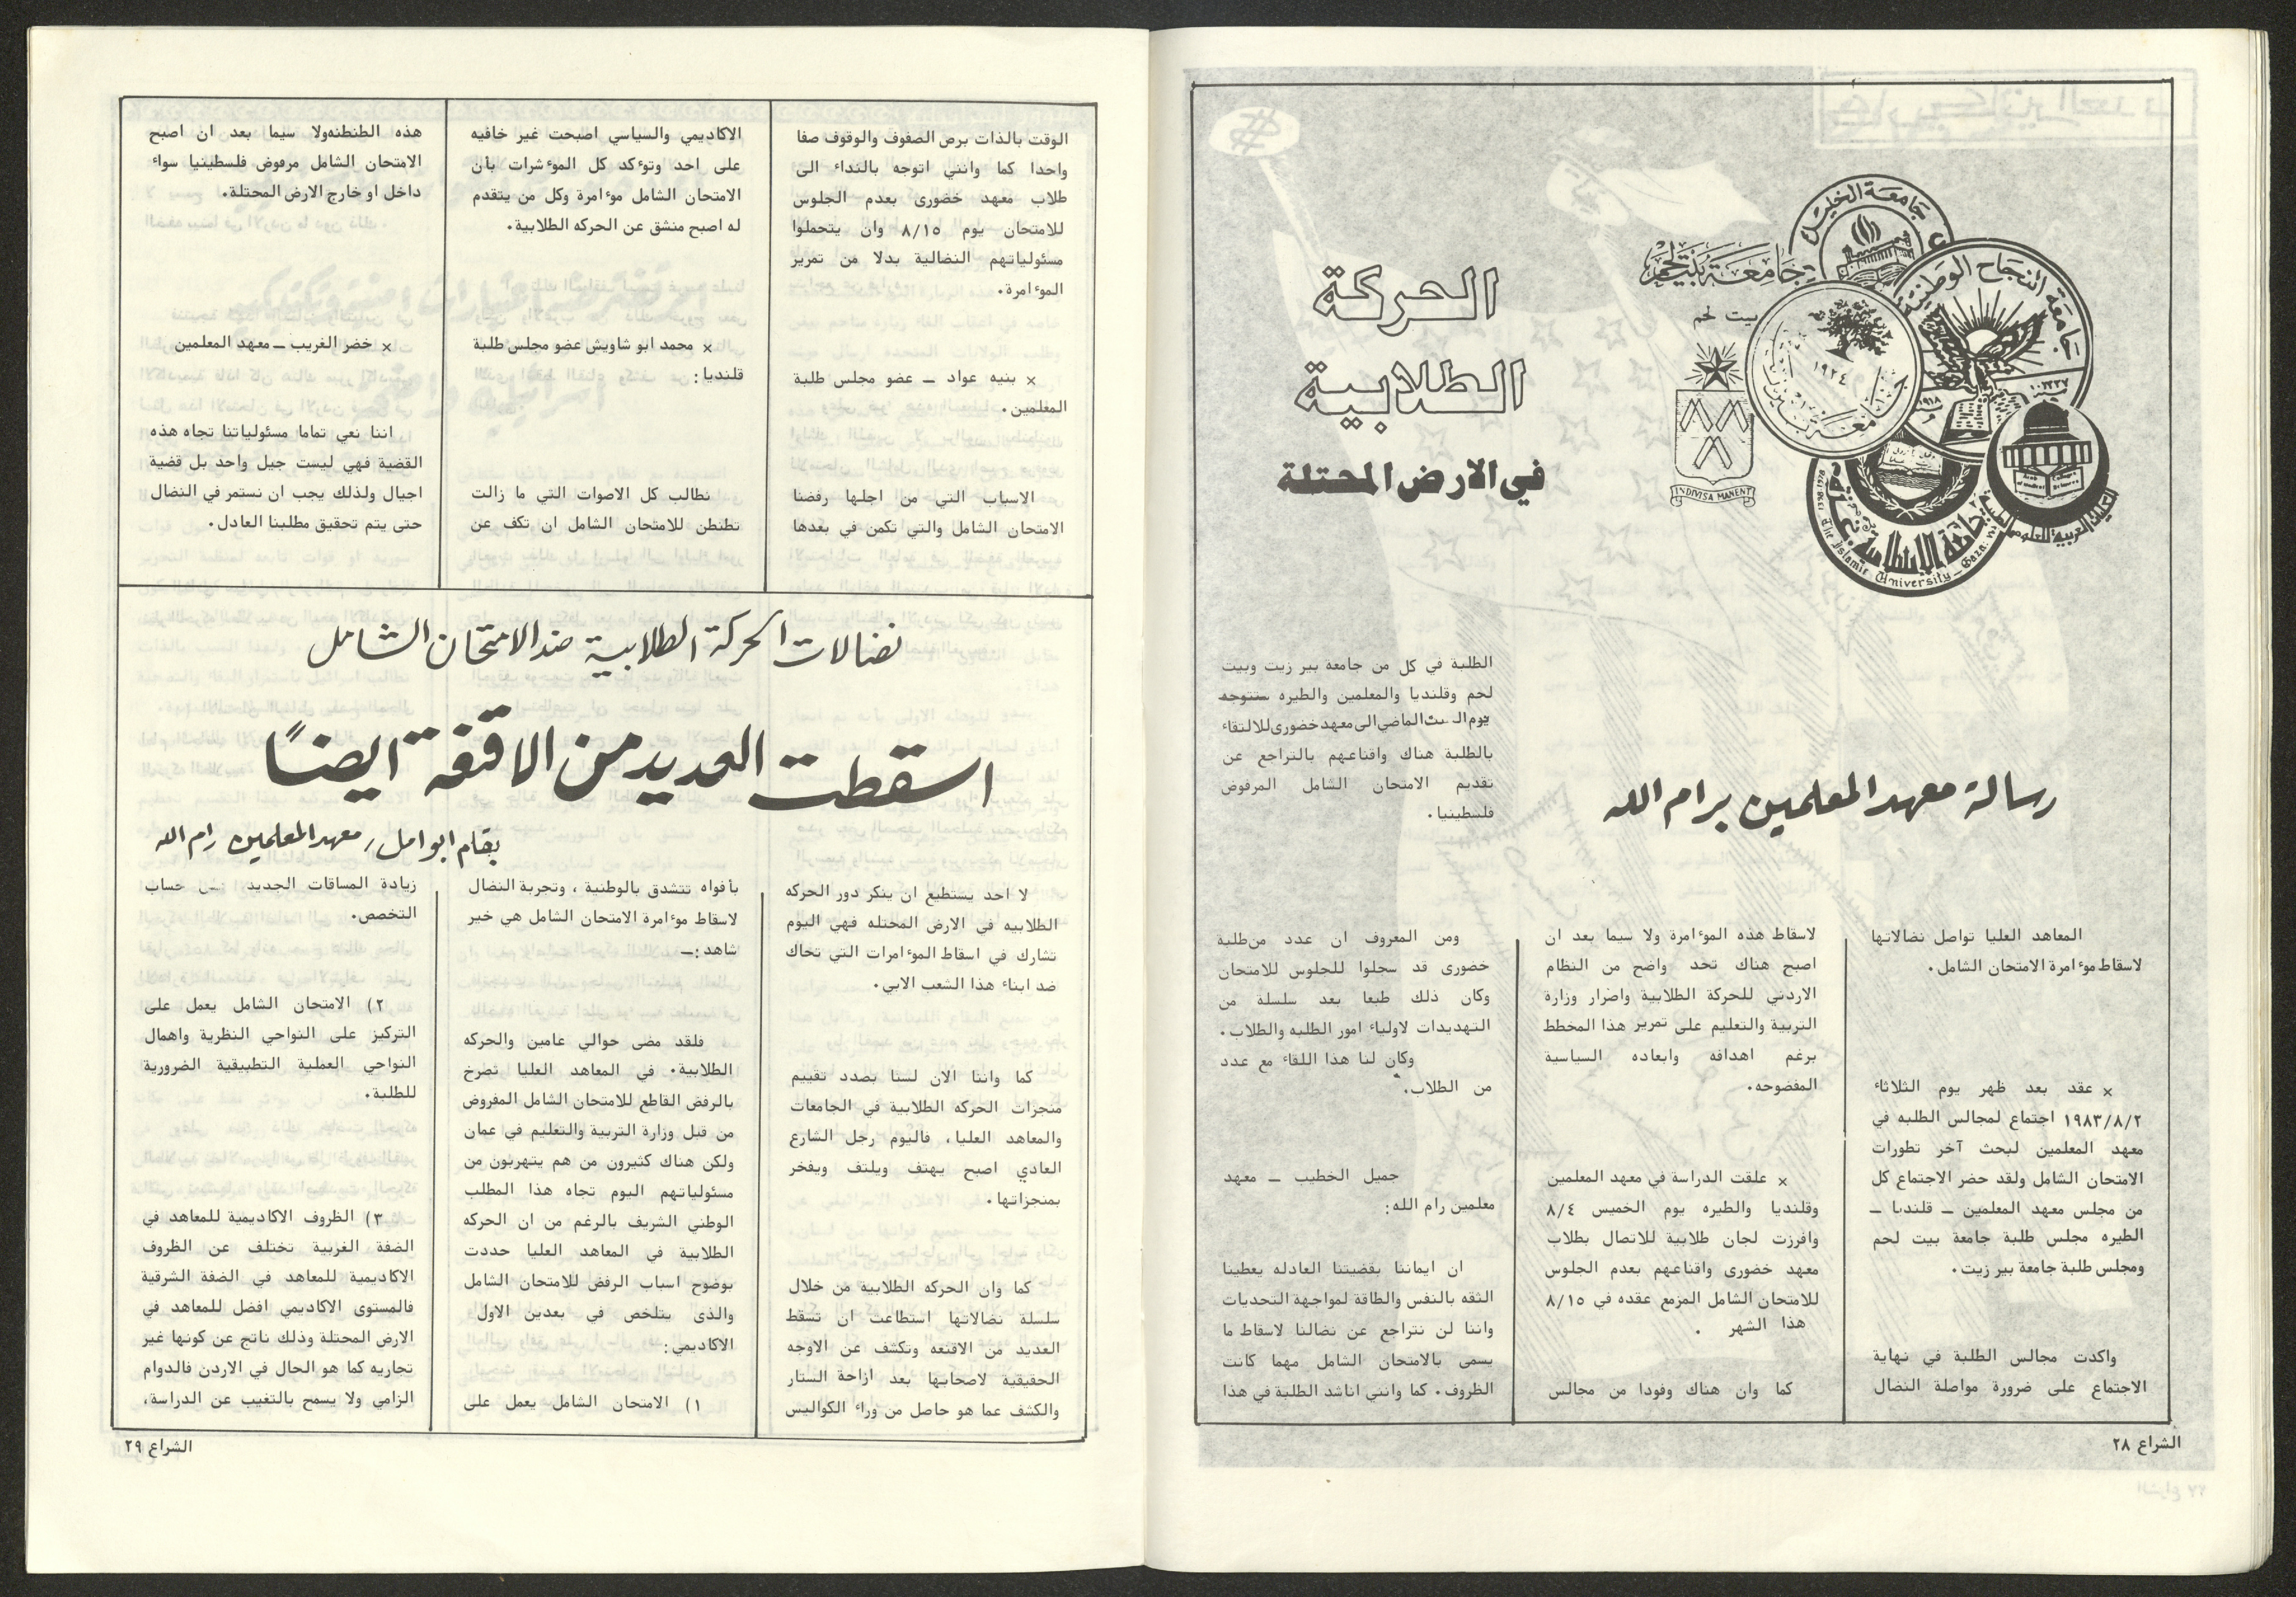 الحركة
الطلابية
في الارض المحتلة
جامعة الخليل
جامعة بيت لحم
بيت لحم
جامعة النجاح الوطنية
١٩١٨
١٩٢٤
جامعة بيرزيت
INDIVISA MANENT
الجامعة الاسلامية بغزة
The Islamic University - Gaza
Arab College of Medical Sciences
رسالة معهد المعلمين برام الله
المعاهد العليا تواصل نضالاتها
لاسقاط موءامرة الامتحان الشامل.
× عقد بعد ظهر يوم الثلاثاء
١٩٨٣/٨/٢ اجتماع لمجالس الطلبه في
معهد المعلمين لبحث آخر تطورات
الامتحان الشامل ولقد حضر الاجتماع كل
من مجلس معهد المعلمين ــ قلنديا ــ
الطيره مجلس طلبة جامعة بيت لحم
ومجلس طلبة جامعة بير زيت.
واكدت مجالس الطلبة في نهاية
الاجتماع على ضرورة مواصلة النضال
لاسقاط هذه الموءامرة ولا سيما بعد ان
اصبح هناك تحد واضح من النظام
الاردني للحركة الطلابية واصرار وزارة
التربية والتعليم على تمرير هذا المخطط
برغم اهدافه وابعاده السياسية
المفضوحه.
× علقت الدراسة في معهد المعلمين
وقلنديا والطيره يوم الخميس ٨/٤
وافرزت لجان طلابية للاتصال بطلاب
معهد خضورى واقناعهم بعدم الجلوس
للامتحان الشامل المزمع عقده في ٨/١٥
هذا الشهر .
كما وان هناك وفودا من مجالس
الطلبة في كل من جامعه بير زيت وبيت
لحم وقلنديا والمعلمين والطيره ستتوجه
يوم السبت الماضي الى معهد خضورى للالتقاء
بالطلبة هناك واقناعهم بالتراجع عن
تقديم الامتحان الشامل المرفوض
فلسطينيا.
ومن المعروف ان عدد من طلبة
خضورى قد سجلوا للجلوس للامتحان
وكان ذلك طبعا بعد سلسلة من
التهديدات لاولياء امور الطلبه والطلاب.
وكان لنا هذا اللقاء مع عدد
من الطلاب.
جميل الخطيب ــ معهد
معلمين رام الله:
ان ايماننا بقضيتنا العادله يعطينا
الثقه بالنفس والطاقة لمواجهة التحديات
واننا لن نتراجع عن نضالنا لاسقاط ما
يسمى بالامتحان الشامل مهما كانت
الظروف. كما وانني اناشد الطلبة في هذا
الشراع ٢٨
الوقت بالذات برص الصفوف والوقوف صفا
واحدا كما وانني اتوجه بالنداء الى
طلاب معهد خضورى بعدم الجلوس
للامتحان يوم ٨/١٥ وان يتحملوا
مسئولياتهم النضالية بدلا من تمرير
الموءامرة.
× بنيه عواد ــ عضو مجلس طلبة
المعلمين.
الاسباب التي من اجلها رفضنا
الامتحان الشامل والتي تكمن في بعدها
الاكاديمي والسياسي اصبحت غير خافيه
على احد وتوءكد كل الموءشرات بأن
الامتحان الشامل موءامرة وكل من يتقدم
له اصبح منشق عن الحركه الطلابية.
× محمد ابو شاويش عضو مجلس طلبة
قلنديا:
نطالب كل الاصوات التي ما زالت
تطنطن للامتحان الشامل ان تكف عن
هذه الطنطنه ولا سيما بعد ان اصبح
الامتحان الشامل مرفوض فلسطينيا سواء
داخل او خارج الارض المحتلة.
× خضر الغريب ــ معهد المعلمين
اننا نعي تماما مسئولياتنا تجاه هذه
القضية فهي ليست جيل واحد بل قضية
اجيال ولذلك يجب ان نستمر في النضال
حتى يتم تحقيق مطلبنا العادل.
نضالات الحركة الطلابية ضد الامتحان الشامل
اسقطت العديد من الاقنعة ايضاً
بقلم ابو امل / معهد المعلمين رام الله
لا احد يستطيع ان ينكر دور الحركه
الطلابيه في الارض المحتله فهي اليوم
تشارك في اسقاط الموءامرات التي تحاك
ضد ابناء هذا الشعب الابي.
كما واننا الان لسنا بصدد تقييم
منجزات الحركه الطلابية في الجامعات
والمعاهد العليا، فاليوم رجل الشارع
العادي اصبح يهتف ويلتف ويفخر
بمنجزاتها.
كما وان الحركه الطلابية من خلال
سلسلة نضالاتها استطاعت ان تسقط
العديد من الاقنعه وتكشف عن الاوجه
الحقيقية لاصحابها بعد ازاحة الستار
والكشف عما هو حاصل من وراء الكواليس
بأفواه تتشدق بالوطنية ، وتجربة النضال
لاسقاط موءامرة الامتحان الشامل هي خير
شاهد:ــ
فلقد مضى حوالي عامين والحركه
الطلابية. في المعاهد العليا تصرخ
بالرفض القاطع للامتحان الشامل المفروض
من قبل وزارة التربية والتعليم في عمان
ولكن هناك كثيرون من هم يتهربون من
مسئولياتهم اليوم تجاه هذا المطلب
الوطني الشريف بالرغم من ان الحركه
الطلابية في المعاهد العليا حددت
بوضوح اسباب الرفض للامتحان الشامل
والذى يتلخص في بعدين الاول
الاكاديمي:
١) الامتحان الشامل يعمل على
زيادة المساقات الجديد على حساب
التخصص.
٢) الامتحان الشامل يعمل على
التركيز على النواحي النظرية واهمال
النواحي العملية التطبيقية الضرورية
للطلبة.
٣) الظروف الاكاديمية للمعاهد في
الضفة الغربية تختلف عن الظروف
الاكاديمية للمعاهد في الضفة الشرقية
فالمستوى الاكاديمي افضل للمعاهد في
الارض المحتلة وذلك ناتج عن كونها غير
تجاريه كما هو الحال في الاردن فالدوام
الزامي ولا يسمح بالتغيب عن الدراسة،
الشراع ٢٩